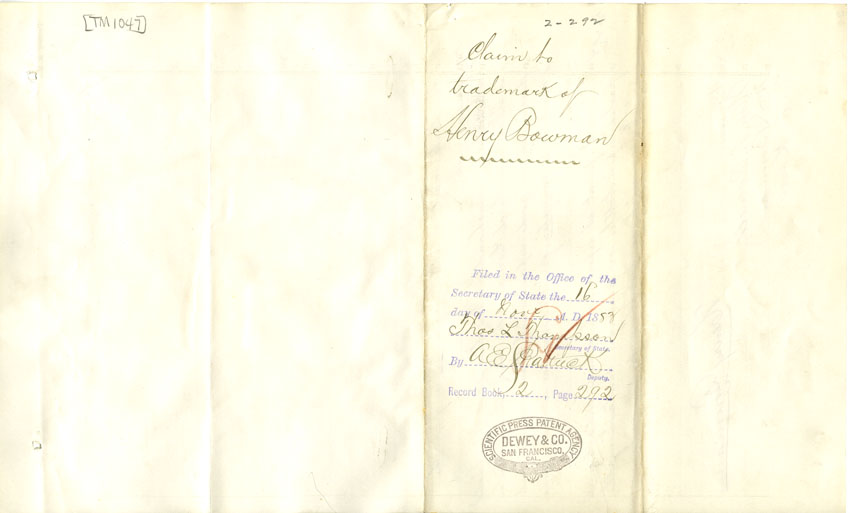 [TM1047]
2-292
Claim to
trademark of
Henry Bowman
Filed in the Office of the
Secretary of State the 16
day of Nov. A. D. 1883
Thos L Thompson
Secretary of State.
By A E
Deputy.
Record Book, 2, Page 292
SCIENTIFIC PRESS PATENT AGENCY
DEWEY & CO.
SAN FRANCISCO,
CAL.